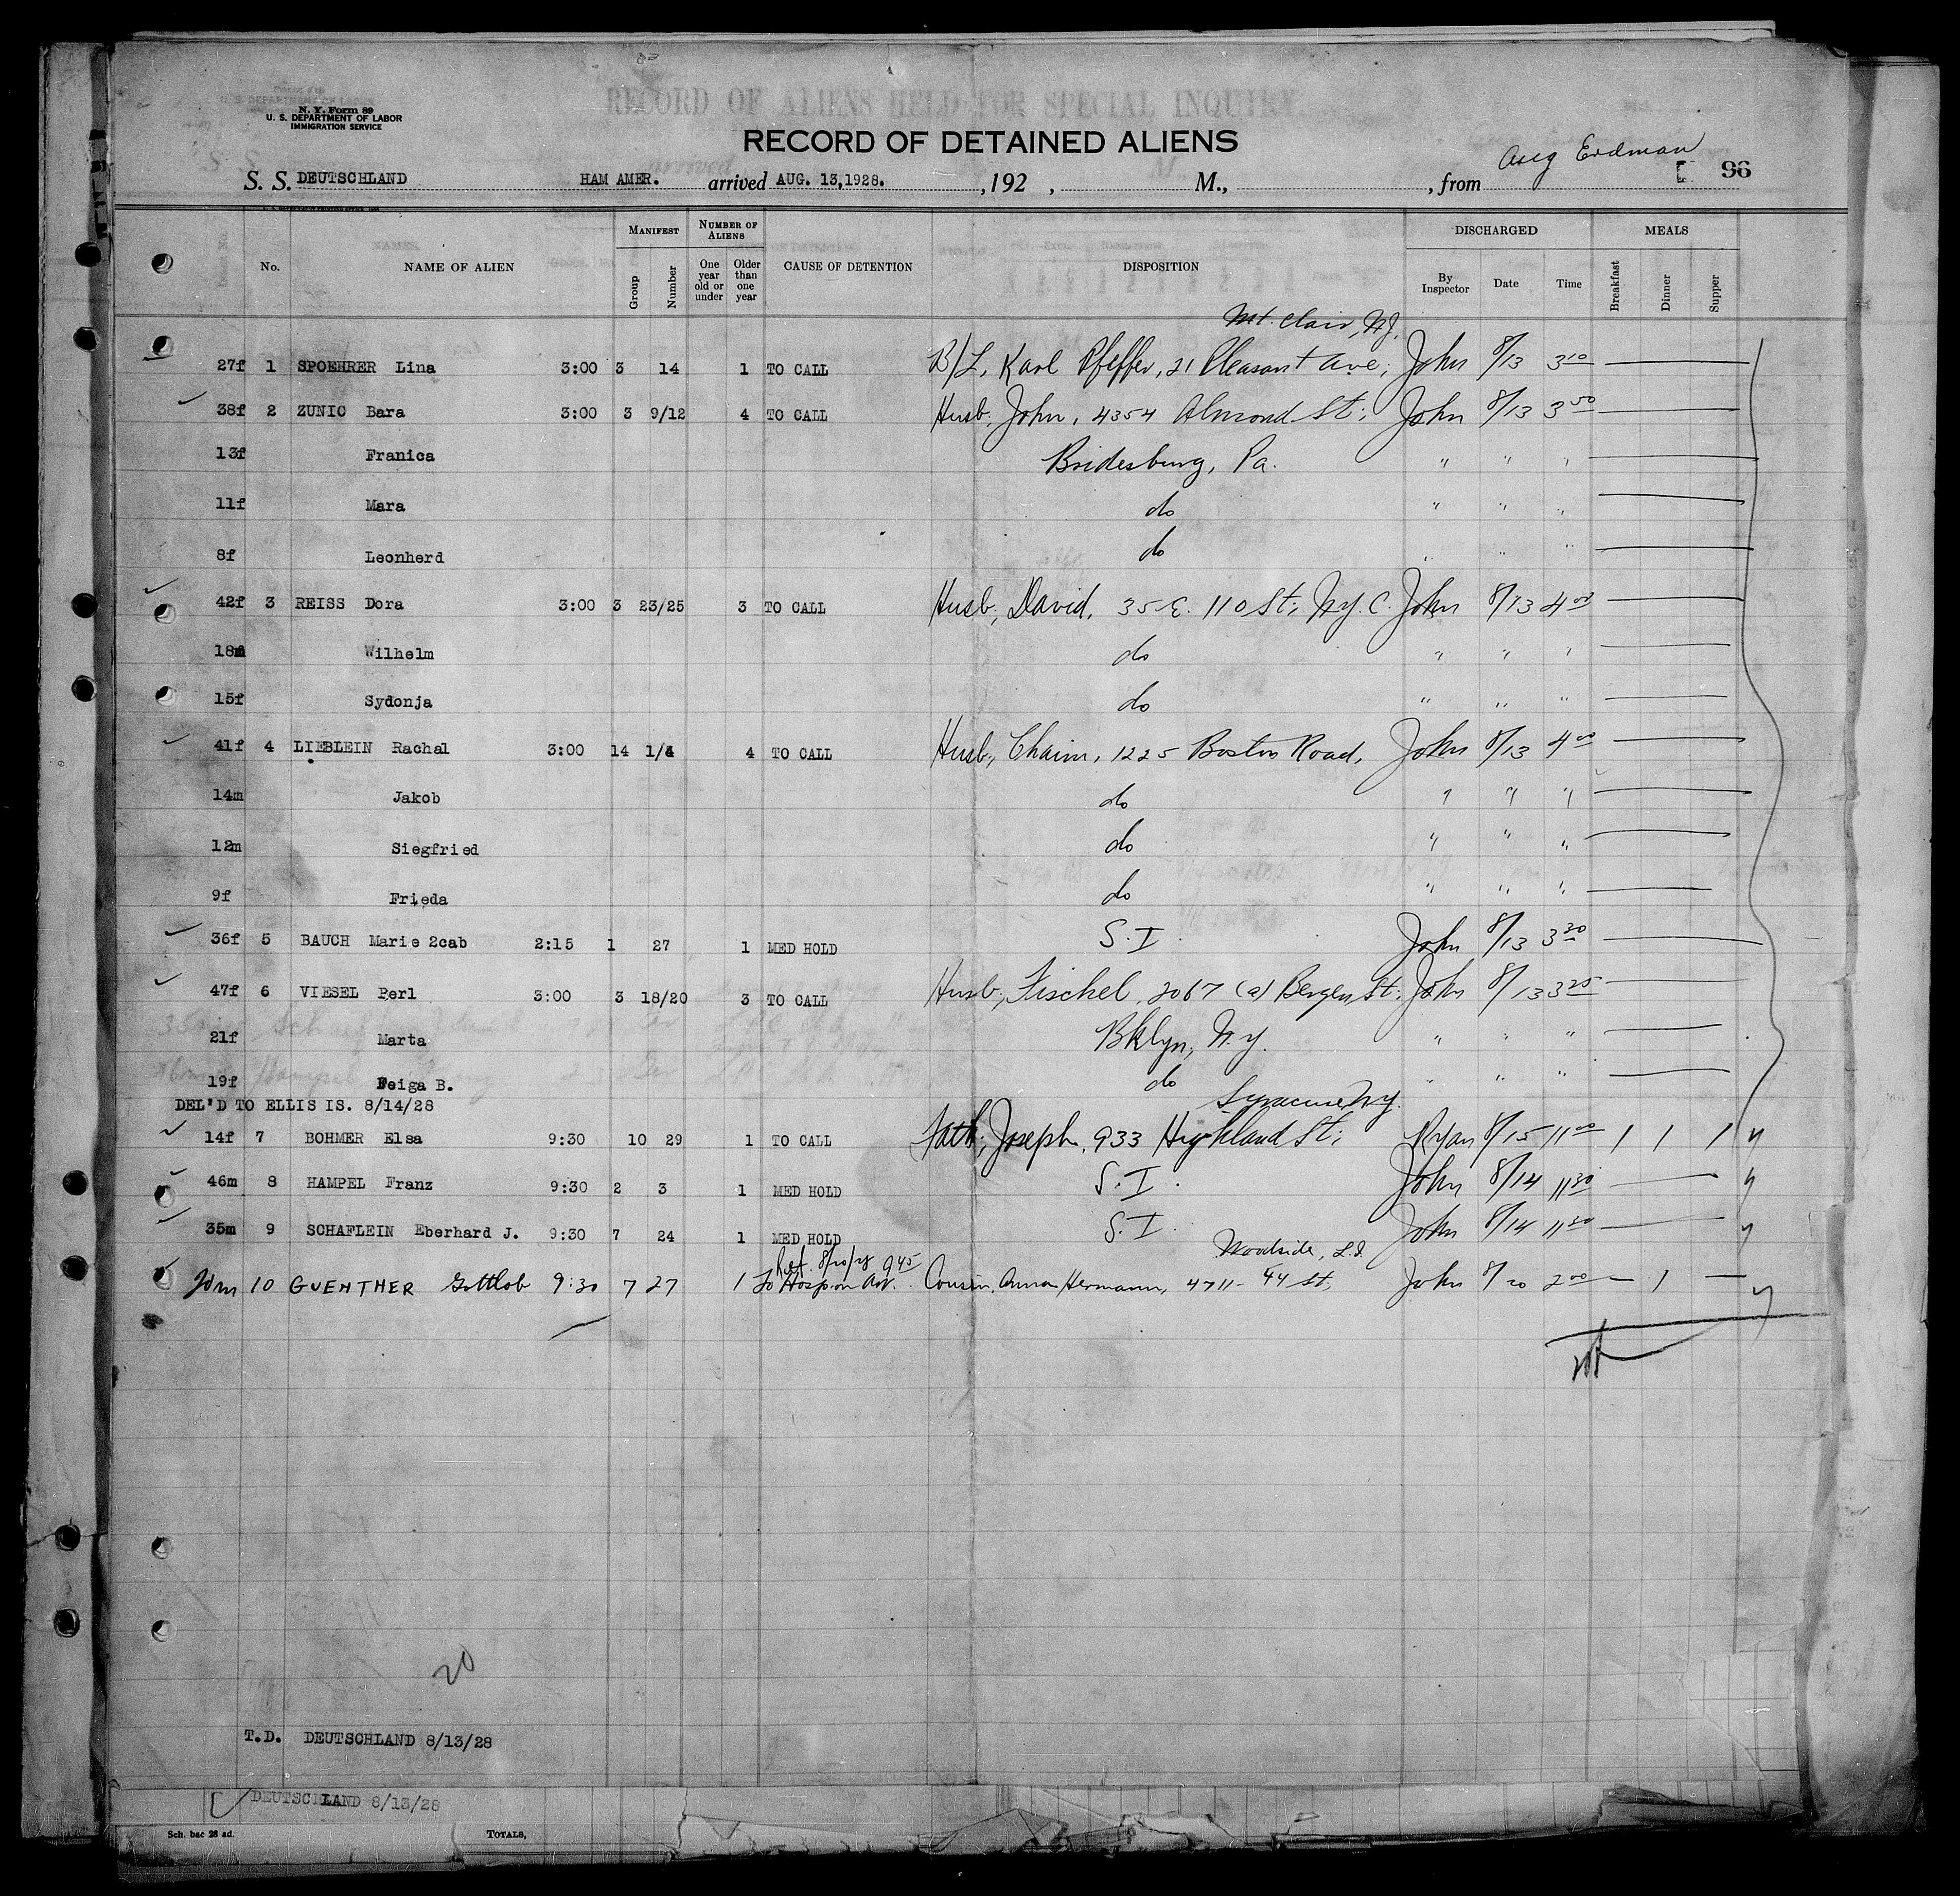 RECORD OF ALIENS HELD FOR SPECIAL INQUIRY
N. Y. Form 89
U. S. DEPARTMENT OF LABOR
IMMIGRATION SERVICE
RECORD OF DETAINED ALIENS
Erdman
S. S. DEUTSCHLAND HAM AMER. arrived AUG. 13,1928. ,192 , M., , from 96
No. NAME OF ALIEN MANIFEST Group Number NUMBER OF ALIENS One year old or under Older than one year CAUSE OF DETENTION DISPOSITION DISCHARGED By Inspector Date Time MEALS Breakfast Dinner Supper
Mt. Clair, NJ.
27f 1 SPOEHRER Lina 3:00 3 14 1 TO CALL B/L, Karl Pfeffer, 21 Pleasant Ave; John 8/13 3 10
38f 2 ZUNIC Bara 3:00 3 9/12 4 TO CALL Husb, John, 4354 Almond St; John 8/13 3 50
13f Franica Bridesburg, Pa. " " "
11f Mara do " " "
8f Leonherd do " " "
42f 3 REISS Dora 3:00 3 23/25 3 TO CALL Husb, David, 35 E. 110 St; N.Y.C. John 8/13 4 00
18m Wilhelm do " " "
15f Sydonja do " " "
41f 4 LIEBLEIN Rachal 3:00 14 1/4 4 TO CALL Husb, Chaim, 1225 Boston Road, John 8/13 4 00
14m Jakob do " " "
12m Siegfried do " " "
9f Frieda do " " "
36f 5 BAUCH Marie 2cab 2:15 1 27 1 MED HOLD S.I. John 8/13 3 30
47f 6 VIESEL Perl 3:00 3 18/20 3 TO CALL Husb, Fischel, 2067 (a) Bergen St; John 8/13 3 25
21f Marta Bklyn, N.Y. " " "
19f Feiga B. do " " "
DEL'D TO ELLIS IS. 8/14/28 Syracuse N.Y.
14f 7 BOHMER Elsa 9:30 10 29 1 TO CALL Fath, Joseph, 933 Highland St; Ryan 8/15 11 00 1 1 1
46m 8 HAMPEL Franz 9:30 2 3 1 MED HOLD S.I. John 8/14 11 30
35m 9 SCHAFLEIN Eberhard J. 9:30 7 24 1 MED HOLD S.I. John 8/14 11 30
Ret. 8/20/28 9 45 Woodside, L.I.
20m 10 GUENTHER Gottlob 9:30 7 27 1 To Hosp on Arr. Cousin, Anna Hermann, 4711-44 St, John 8/20 2 00 — 1 —
20
T.D. DEUTSCHLAND 8/13/28
DEUTSCHLAND 8/13/28
Sch. bac 28 ad. TOTALS,